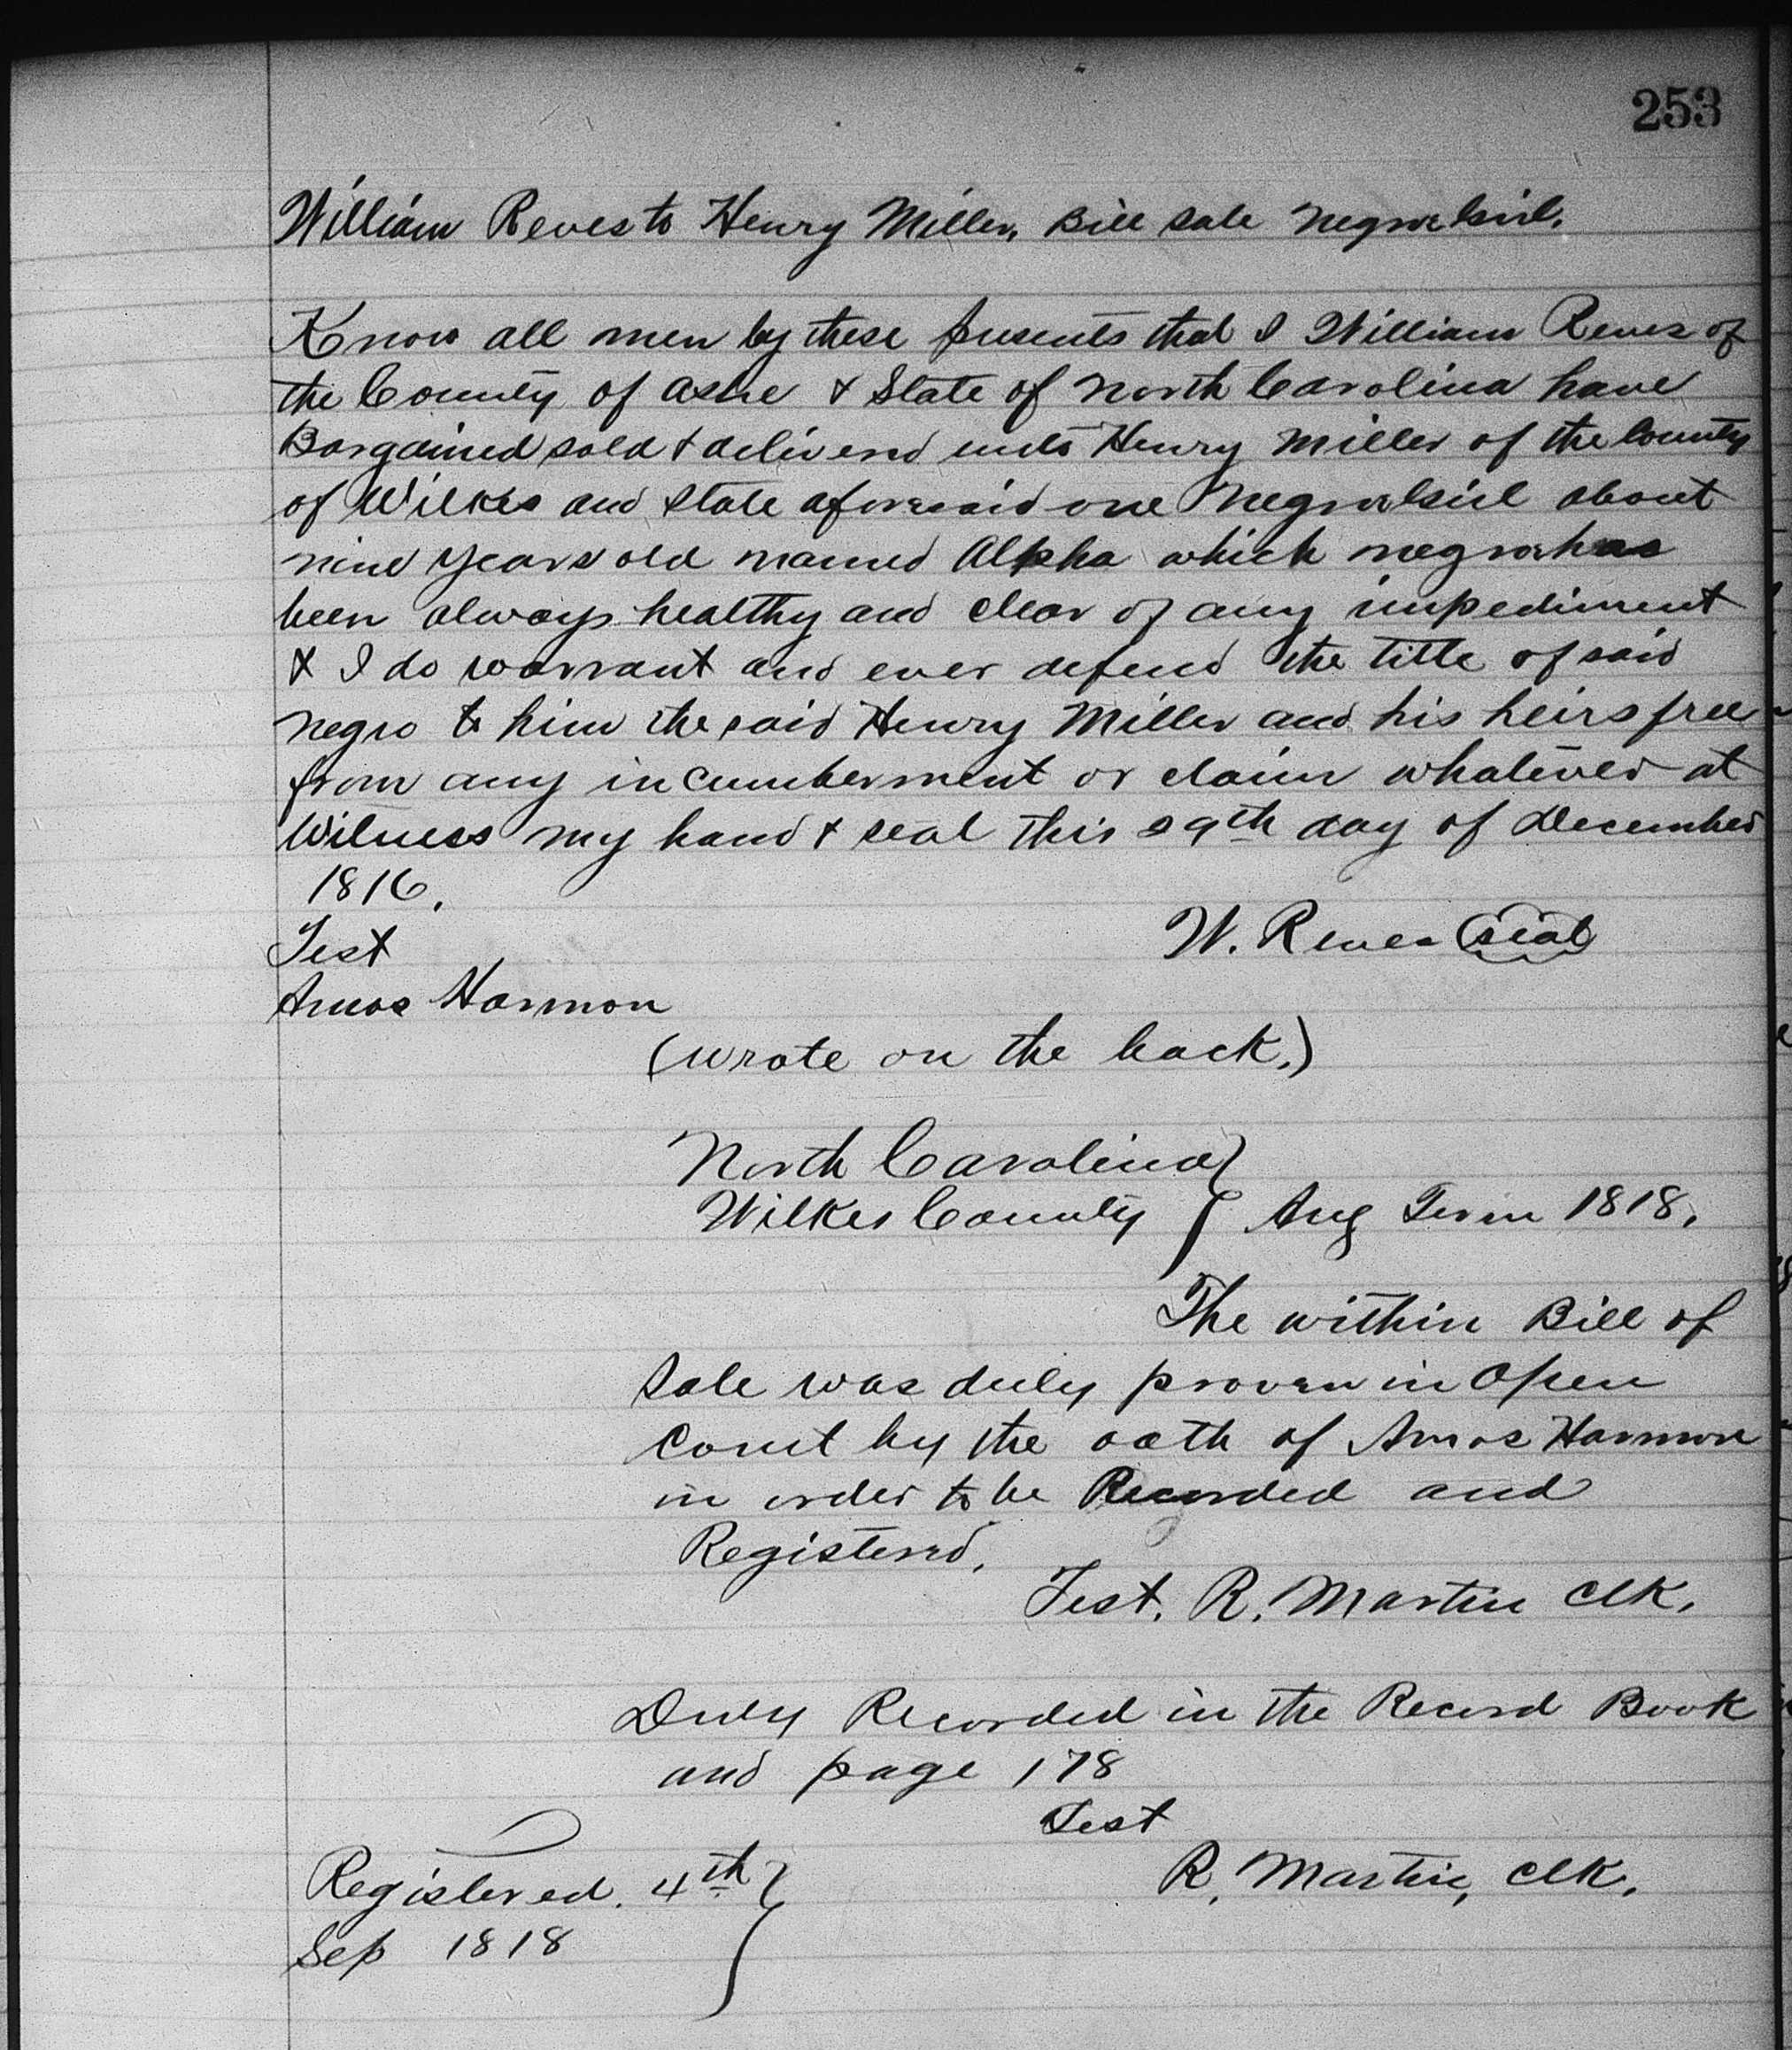 253
William Reves to Henry Miller, Bill Sale Negro Girl.
Know all men by these presents that I William Reves of
the County of Ashe & State of North Carolina have
Bargained sold & delivered unto Henry Miller of the County
of Wilkes and State aforesaid one Negro Girl about
nine years old named Alpha which negro has
been always healthy and clear of any impediment
& I do warrant and ever defend the title of said
negro to him the said Henry Miller and his heirs free
from any incumberment or claim whatever at
Witness my hand & seal this 29th day of December
1816.
Test
W. Reves (Seal)
Amos Harmon
(wrote on the back.)
North Carolina }
Wilkes County } Aug Term 1818.
The within Bill of
Sale was duly proven in Open
Court by the oath of Amos Harmon
in order to be Recorded and
Registered.
Test. R. Martin Clk.
Duly Recorded in the Record Book
and page 178
Test
R. Martin, Clk.
Registered. 4th }
Sep 1818